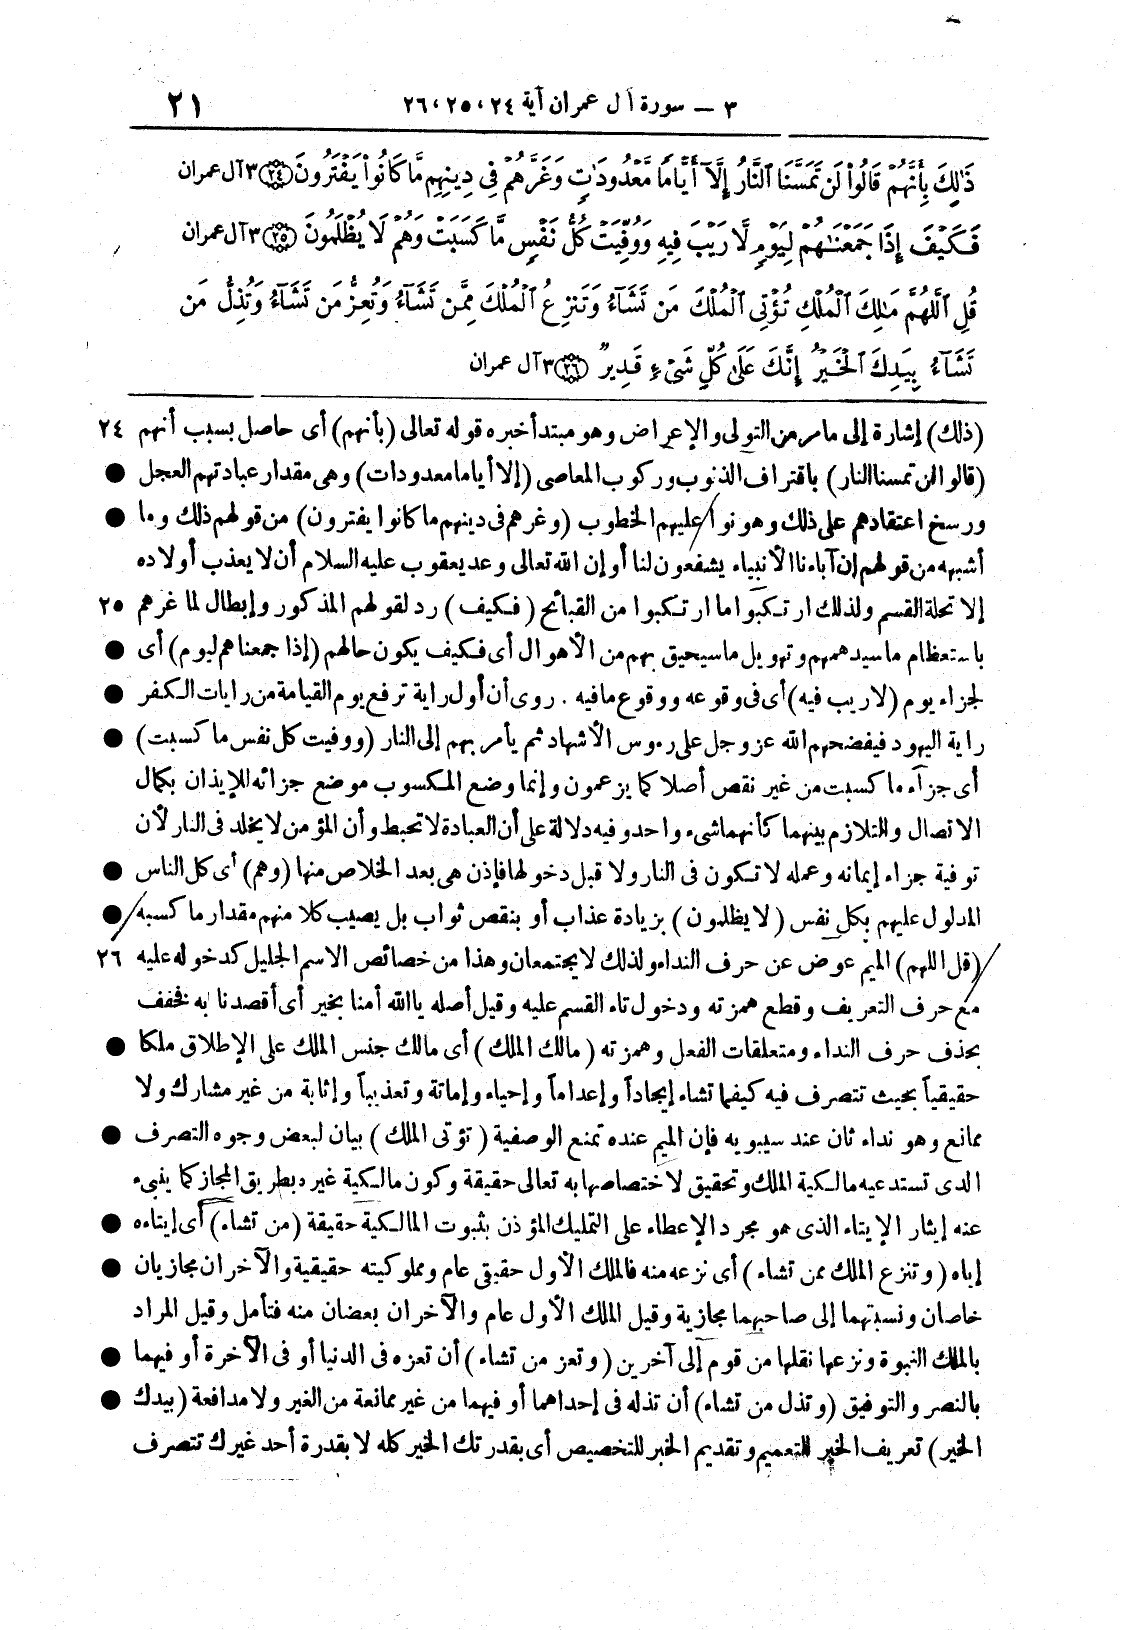 ٣ — سورة آل عمران آية ٢٤، ٢٥، ٢٦ ٢١
ذَٰلِكَ بِأَنَّهُمْ قَالُوا۟ لَن تَمَسَّنَا ٱلنَّارُ إِلَّآ أَيَّامًا مَّعْدُودَٰتٍ وَغَرَّهُمْ فِى دِينِهِم مَّا كَانُوا۟ يَفْتَرُونَ ﴿٢٤﴾ ٣ آل عمران
فَكَيْفَ إِذَا جَمَعْنَٰهُمْ لِيَوْمٍ لَّا رَيْبَ فِيهِ وَوُفِّيَتْ كُلُّ نَفْسٍ مَّا كَسَبَتْ وَهُمْ لَا يُظْلَمُونَ ﴿٢٥﴾ ٣ آل عمران
قُلِ ٱللَّهُمَّ مَٰلِكَ ٱلْمُلْكِ تُؤْتِى ٱلْمُلْكَ مَن تَشَآءُ وَتَنزِعُ ٱلْمُلْكَ مِمَّن تَشَآءُ وَتُعِزُّ مَن تَشَآءُ وَتُذِلُّ مَن
تَشَآءُ بِيَدِكَ ٱلْخَيْرُ إِنَّكَ عَلَىٰ كُلِّ شَىْءٍ قَدِيرٌ ﴿٢٦﴾ ٣ آل عمران
(ذلك) إشارة إلى مامر من التولى والإعراض وهو مبتدأ خبره قوله تعالى (بأنهم) أى حاصل بسبب أنهم ٢٤
(قالوا لن تمسنا النار) باقتراف الذنوب وركوب المعاصى (إلا أياما معدودات) وهى مقدار عبادتهم العجل ●
ورسخ اعتقادهم على ذلك وهونوا عليهم الخطوب (وغرهم فى دينهم ما كانوا يفترون) من قولهم ذلك وما ●
أشبهه من قولهم إن آباءنا الأنبياء يشفعون لنا أو إن الله تعالى وعد يعقوب عليه السلام أن لا يعذب أولاده
إلا تحلة القسم ولذلك ارتكبوا ما ارتكبوا من القبائح (فكيف) رد لقولهم المذكور وإبطال لما غرهم ٢٥
باستعظام ما سيدهمهم وتهويل ما سيحيق بهم من الأهوال أى فكيف يكون حالهم (إذا جمعناهم ليوم) أى ●
لجزاء يوم (لا ريب فيه) أى فى وقوعه ووقوع ما فيه . روى أن أول راية ترفع يوم القيامة من رايات الكفر ●
راية اليهود فيفضحهم الله عز وجل على رءوس الأشهاد ثم يأمر بهم إلى النار (ووفيت كل نفس ما كسبت) ●
أى جزاء ما كسبت من غير نقص أصلا كما يزعمون وإنما وضع المكسوب موضع جزائه للإيذان بكمال
الاتصال والتلازم بينهما كأنهما شىء واحد وفيه دلالة على أن العبادة لا تحبط وأن المؤمن لا يخلد فى النار لأن
توفية جزاء إيمانه وعمله لا تكون فى النار ولا قبل دخولها فإذن هى بعد الخلاص منها (وهم) أى كل الناس ●
المدلول عليهم بكل نفس (لا يظلمون) بزيادة عذاب أو بنقص ثواب بل يصيب كلا منهم مقدار ما كسبه ●
(قل اللهم) الميم عوض عن حرف النداء ولذلك لا يجتمعان وهذا من خصائص الاسم الجليل كدخوله عليه ٢٦
مع حرف التعريف وقطع همزته ودخول تاء القسم عليه وقيل أصله يا الله أمنا بخير أى أقصدنا به فخفف
بحذف حرف النداء ومتعلقات الفعل وهمزته (مالك الملك) أى مالك جنس الملك على الإطلاق ملكا ●
حقيقياً بحيث تتصرف فيه كيفما تشاء إيجاداً وإعداماً وإحياء وإماتة وتعذيباً وإثابة من غير مشارك ولا
ممانع وهو نداء ثان عند سيبويه فإن الميم عنده تمنع الوصفية (تؤتى الملك) بيان لبعض وجوه التصرف ●
الذى تستدعيه مالكية الملك وتحقيق لاختصاصها به تعالى حقيقة وكون مالكية غيره بطريق المجاز كما ينبىء
عنه إيثار الإيتاء الذى هو مجرد الإعطاء على التمليك المؤذن بثبوت المالكية حقيقة (من تشاء) أى إيتاءه ●
إياه (وتنزع الملك ممن تشاء) أى نزعه منه فالملك الأول حقيقى عام ومملوكيته حقيقية والآخران مجازيان ●
خاصان ونسبتهما إلى صاحبهما مجازية وقيل الملك الأول عام والآخران بعضان منه فتأمل وقيل المراد
بالملك النبوة ونزعها نقلها من قوم إلى آخرين (وتعز من تشاء) أن تعزه فى الدنيا أو فى الآخرة أو فيهما ●
بالنصر والتوفيق (وتذل من تشاء) أن تذله فى إحداهما أو فيهما من غير ممانعة من الغير ولا مدافعة (بيدك ●
الخير) تعريف الخير للتعميم وتقديم الخبر للتخصيص أى بقدرتك الخير كله لا بقدرة أحد غيرك تتصرف